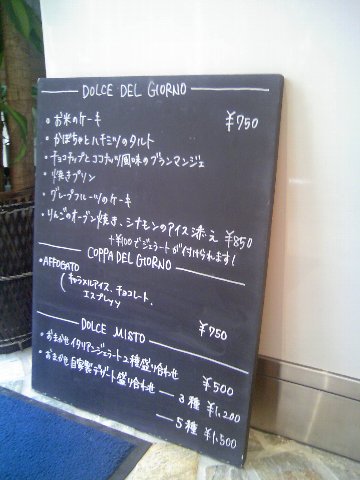 DOLCE DEL GIORNO
・お米のケーキ ¥750
・かぼちゃとハチミツのタルト
・チョコチップとココナッツ風味のブランマンジェ
・焼きプリン
・グレープフルーツのケーキ
・りんごのオーブン焼き、シナモンのアイス添え ¥850
+¥100でジェラートが付けられます!
COPPA DEL GIORNO
・AFFOGATO
(キャラメルアイス、チョコレート、
エスプレッソ ¥750
DOLCE MISTO
・おまかせイタリアンジェラート2種盛り合わせ ¥500
・おまかせ自家製デザート盛り合わせ — 3種 ¥1,200
5種 ¥1,500